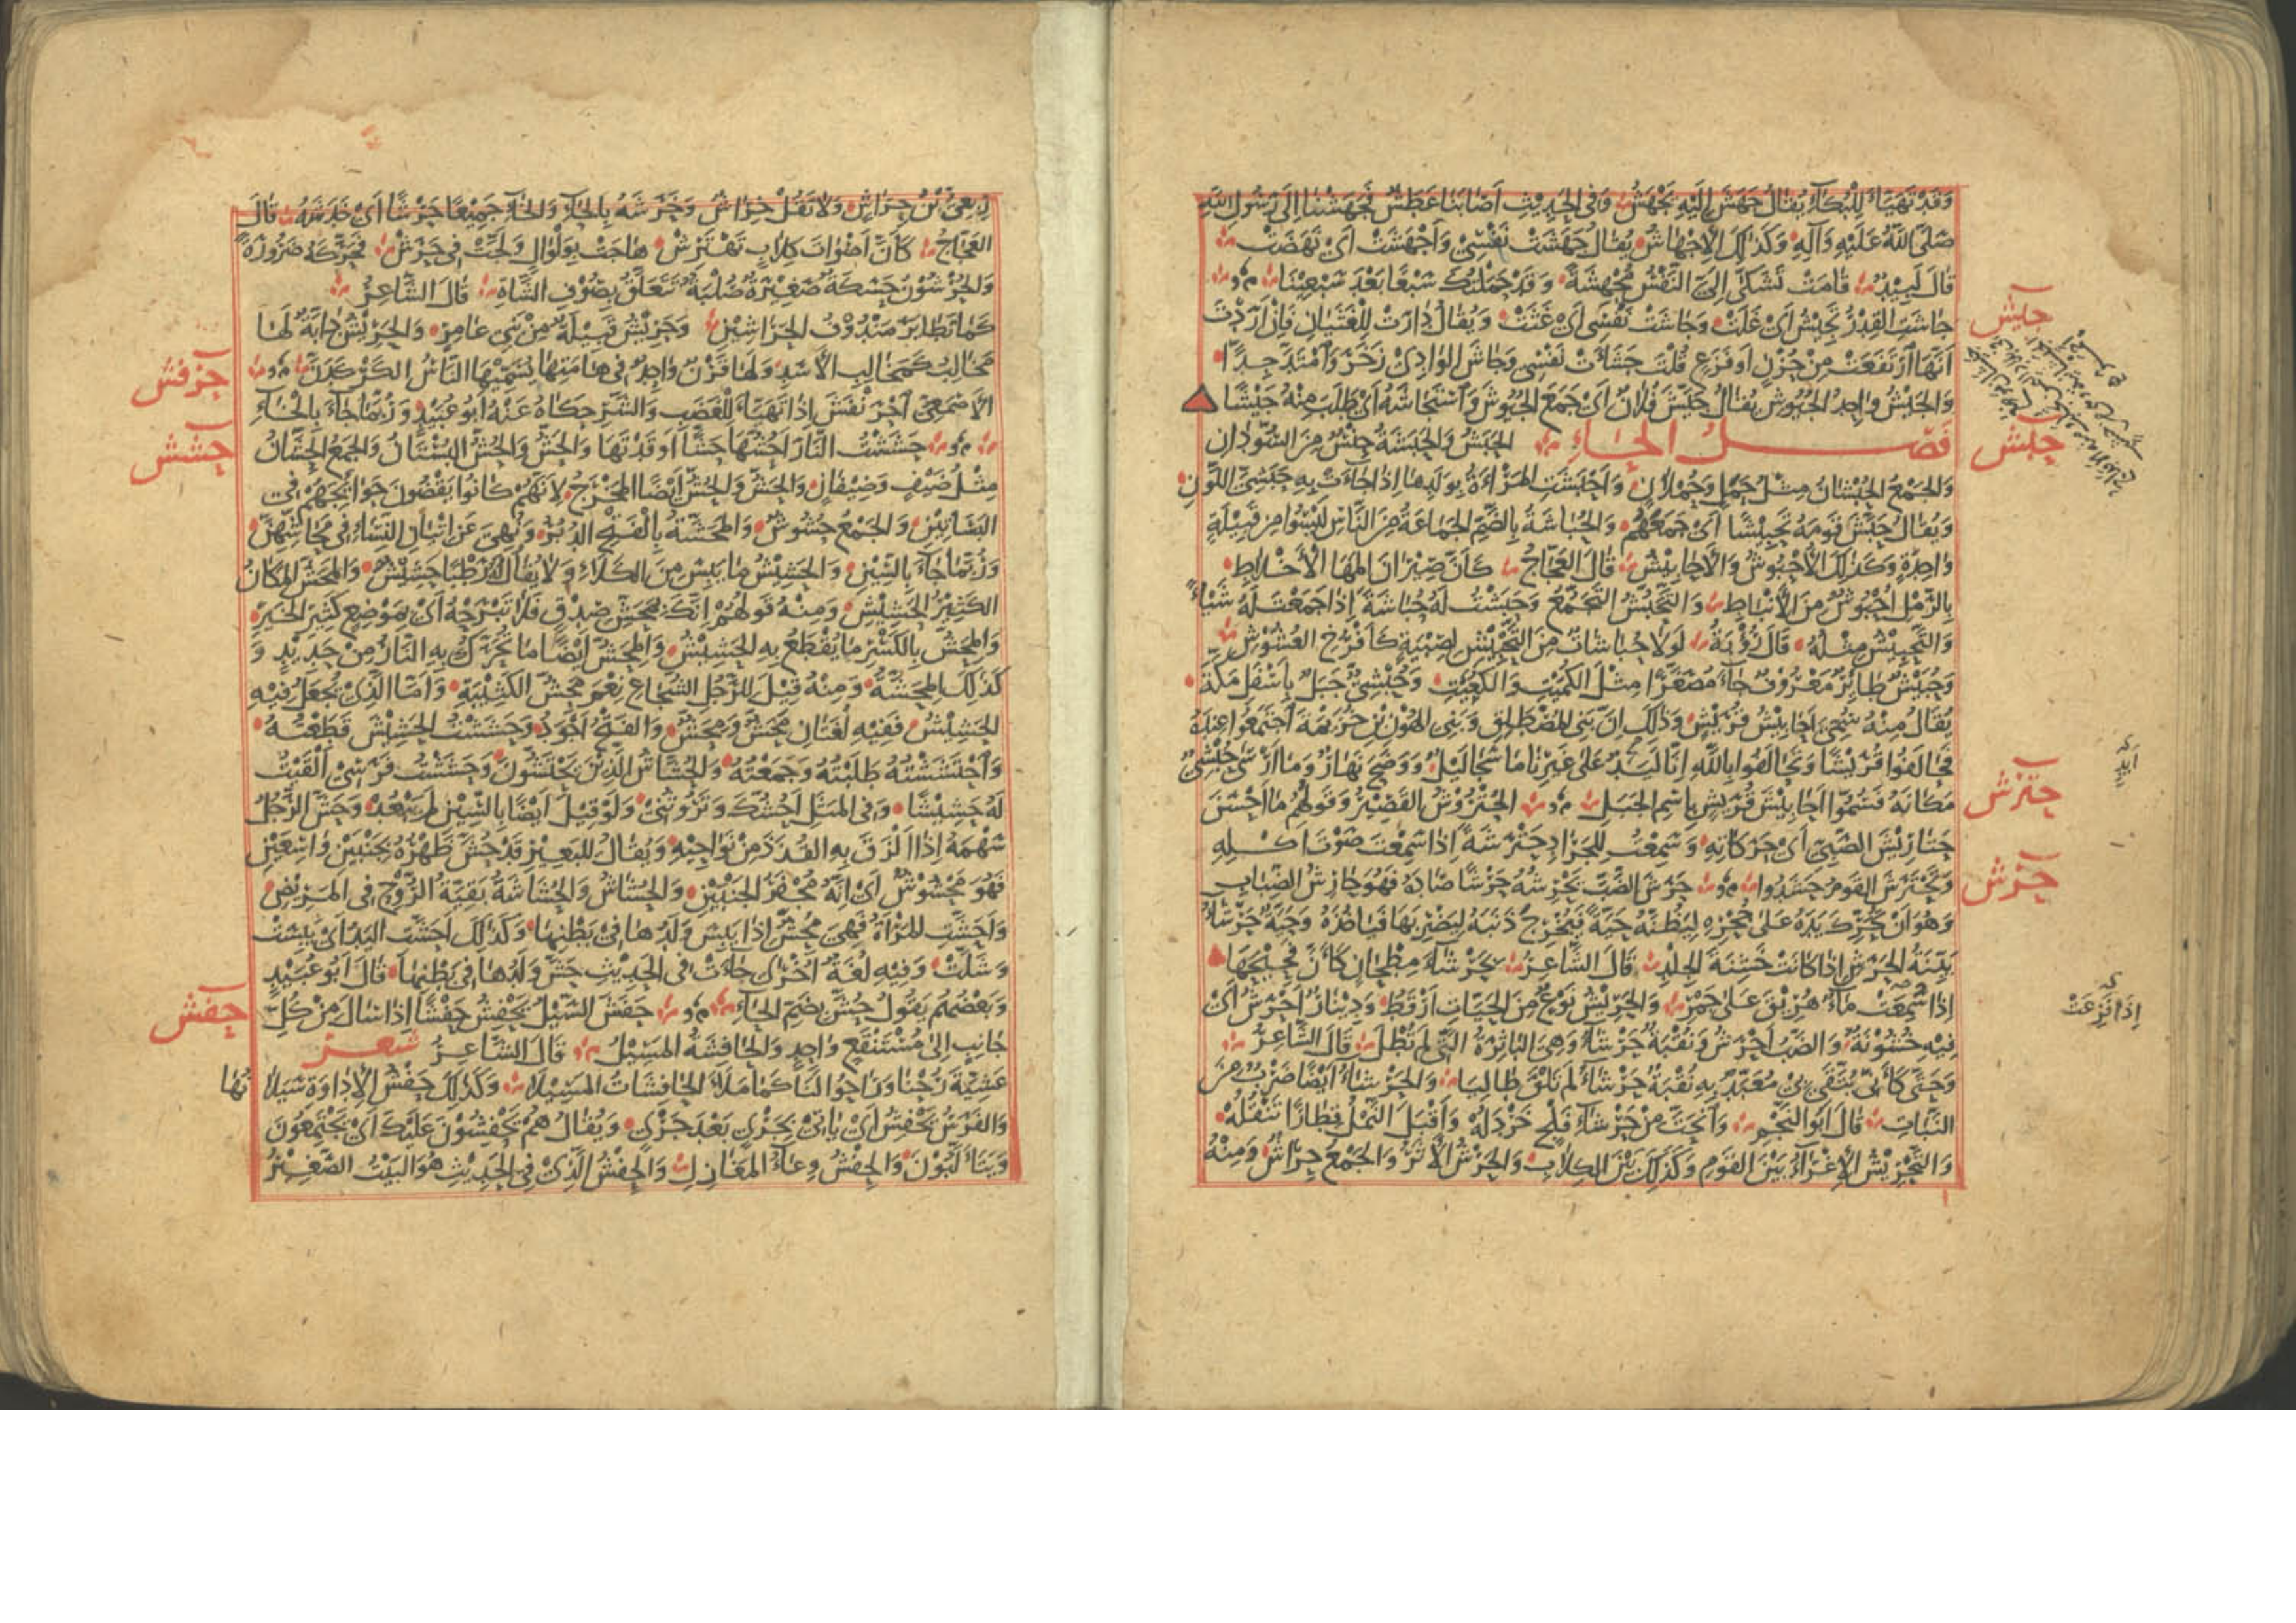 وَقَدْ تَهَيَّأَ لِلْبُكَاءِ يُقَالُ جَهَشَ إِلَيْهِ يَجْهَشُ وَفِى الْحَدِيثِ أَصَابَنَا عَطَشٌ فَجَهَشْنَا إِلَى رَسُولِ اللّٰهِ
صَلَّى اللّٰهُ عَلَيْهِ وَآلِهِ وَكَذٰلِكَ الْإِجْهَاشُ يُقَالُ جَهَشَتْ نَفْسِىْ وَأَجْهَشَتْ أَىْ نَهَضَتْ
قَالَ لَبِيْدٌ قَامَتْ تَشَكَّى إِلَىَّ النَّفْسُ مُجْهِشَةً وَقَدْ حَمَلْتُكِ سَبْعًا بَعْدَ سَبْعِيْنَا
جيش
جَاشَتِ الْقِدْرُ تَجِيْشُ أَىْ غَلَتْ وَجَاشَتْ نَفْسِى أَىْ غَثَتْ وَيُقَالُ دَارَتْ لِلْغَثَيَانِ فَإِنْ أَرَدْتَ
أَنَّهَا ارْتَفَعَتْ مِنْ حُزْنٍ أَوْ فَزَعٍ قُلْتَ جَشَأَتْ نَفْسِى وَجَاشَ الْوَادِىْ زَخَرَ وَامْتَدَّ جِدًّا
وَالْجَيْشُ وَاحِدُ الْجُيُوشِ يُقَالُ جَيَّشَ فُلَانٌ أَىْ جَمَعَ الْجُيُوشَ وَاسْتَجَاشَهُ أَىْ طَلَبَ مِنْهُ جَيْشًا
حبش
فَصْلُ الْحَاءِ الْحَبَشُ وَالْحَبَشَةُ جِنْسٌ مِنَ السُّوْدَانِ
وَالْجَمْعُ الْحُبْشَانُ مِثْلُ حَمَلٍ وَحُمْلَانٍ وَأَحْبَشَتِ الْمَرْأَةُ بِوَلَدِهَا إِذَا جَاءَتْ بِهِ حَبَشِىَّ اللَّوْنِ
وَيُقَالُ حَبَّشَ قَوْمَهُ تَحْبِيْشًا أَىْ جَمَعَهُمْ وَالْحُبَاشَةُ بِالضَّمِّ الْجَمَاعَةُ مِنَ النَّاسِ لَيْسُوا مِنْ قَبِيْلَةٍ
وَاحِدَةٍ وَكَذٰلِكَ الْأُحْبُوْشُ وَالْأَحَابِيْشُ قَالَ الْعَجَّاجُ كَأَنَّ صِيْرَانَ الْمَهَا الْأَخْلَاطِ
بِالرَّمْلِ أُحْبُوْشٌ مِنَ الْأَنْبَاطِ وَالتَّحَبُّشُ التَّجَمُّعُ وَحَبَشْتُ لَهُ حُبَاشَةً إِذَا جَمَعْتَ لَهُ شَيْئًا
وَالتَّحْبِيْشُ مِثْلُهُ قَالَ رُؤْبَةُ لَوْلَا حُبَاشَاتٌ مِنَ التَّحْبِيْشِ لِصِبْيَةٍ كَأَفْرُخِ الْعُشُوْشِ
وَحُبَيْشٌ طَائِرٌ مَعْرُوْفٌ جَاءَ مُصَغَّرًا مِثْلَ الْكُمَيْتِ وَالْكُعَيْتِ وَحُبْشِىٌّ جَبَلٌ بِأَسْفَلِ مَكَّةَ
يُقَالُ مِنْهُ سُمِّىَ أَحَابِيْشُ قُرَيْشٍ وَذٰلِكَ أَنَّ بَنِى الْمُصْطَلِقِ وَبَنِى الْهُوْنِ بْنِ خُزَيْمَةَ اجْتَمَعُوا عِنْدَهُ
فَحَالَفُوا قُرَيْشًا وَتَحَالَفُوا بِاللّٰهِ إِنَّا لَيَدٌ عَلَى غَيْرِنَا مَا سَجَا لَيْلٌ وَوَضَحَ نَهَارٌ وَمَا أَرْسَى حُبْشِىٌّ
حترش
مَكَانَهُ فَسُمُّوا أَحَابِيْشَ قُرَيْشٍ بِاسْمِ الْجَبَلِ الْحُتْرُوْشُ الْقَصِيْرُ وَقَوْلُهُمْ مَا أَحْسَنَ
حَتَارِيْشَ الصَّبِىِّ أَىْ حَرَكَاتِهِ وَسَمِعْتُ لِلْجَرَادِ حَتْرَشَةً إِذَا سَمِعْتَ صَوْتَ أَكْلِهِ
حرش
وَتَحَتْرَشَ الْقَوْمُ حَشَدُوا حَرَشَ الضَّبَّ يَحْرِشُهُ حَرْشًا صَادَهُ فَهُوَ حَارِشُ الضِّبَابِ
وَهُوَ أَنْ يُحَرِّكَ يَدَهُ عَلَى جُحْرِهِ لِيَظُنَّهُ حَيَّةً فَيُخْرِجُ ذَنَبَهُ لِيَضْرِبَهَا فَيَأْخُذُهُ وَحَيَّةٌ حَرْشَاءُ
بَيِّنَةُ الْحَرَشِ إِذَا كَانَتْ خَشِنَةَ الْجِلْدِ قَالَ الشَّاعِرُ بِحَرْشَاءَ مِطْحَانٍ كَأَنَّ فَحِيْحَهَا
إِذَا سُمِعَتْ مَاءٌ هُرِيْقَ عَلَى جَمْرِ وَالْحَرِيْشُ نَوْعٌ مِنَ الْحَيَّاتِ أَرْقَطُ وَدِيْنَارٌ أَحْرَشُ أَىْ
إِذَا فَزِعَتْ
فِيْهِ خُشُوْنَةٌ وَالضَّبُّ أَحْرَشُ وَنُقْبَةٌ حَرْشَاءُ وَهِىَ الْبَاثِرَةُ الَّتِى لَمْ تُطْلَ قَالَ الشَّاعِرُ
وَحَتَّى كَأَنِّى يَتَّقِى بِىْ مُعَبَّدٌ بِهِ نُقْبَةٌ حَرْشَاءُ لَمْ تَلْقَ طَالِيَا وَالْحَرْشَاءُ أَيْضًا ضَرْبٌ مِنَ
النَّبَاتِ قَالَ أَبُو النَّجْمِ وَانْحَتَّ مِنْ حَرْشَاءِ فَلْجٍ خَرْدَلُهُ وَأَقْبَلَ النَّمْلُ قِطَارًا تَنْقُلُهُ
وَالتَّحْرِيْشُ الْإِغْرَاءُ بَيْنَ الْقَوْمِ وَكَذٰلِكَ بَيْنَ الْكِلَابِ وَالْحَرْشُ الْأَثَرُ وَالْجَمْعُ حِرَاشٌ وَمِنْهُ
رِبْعِىُّ بْنُ حِرَاشٍ وَلَا تَقُلْ خِرَاش وَخَرَشَهُ بِالْحَاءِ وَالْخَاءِ جَمِيْعًا خَرْشًا أَىْ خَدَشَهُ قَالَ
الْعَجَّاجُ كَأَنَّ أَصْوَاتَ كِلَابٍ تَهْتَرِشْ هَاجَتْ بِوَلْوَالٍ وَلَجَّتْ فِى حَرَشْ فَحَرَّكَهُ ضَرُوْرَةً
وَالْحُرْشُوْنُ حَسَكَةٌ صَغِيْرَةٌ صُلْبَةٌ تَتَعَلَّقُ بِصُوْفِ الشَّاةِ قَالَ الشَّاعِرُ
كَمَا تَطَايَرَ مَنْدُوْفُ الْحَرَاشِيْنِ وَحَرِيْشٌ قَبِيْلَةٌ مِنْ بَنِى عَامِرٍ وَالْحَرِيْشُ دَابَّةٌ لَهَا
حرفش
مَخَالِبُ كَمَخَالِبِ الْأَسَدِ وَلَهَا قَرْنٌ وَاحِدٌ فِى هَامَتِهَا يُسَمِّيْهَا النَّاسُ الْكَرْكَدَّنَ
الْأَصْمَعِىُّ احْرَنْفَشَ إِذَا تَهَيَّأَ لِلْغَضَبِ وَالشَّرِّ حَكَاهُ عَنْهُ أَبُو عُبَيْدٍ وَرُبَّمَا جَاءَ بِالْخَاءِ
حشش
حَشَشْتُ النَّارَ أَحُشُّهَا حَشًّا أَوْقَدْتُهَا وَالْحَشُّ وَالْحُشُّ الْبُسْتَانُ وَالْجَمْعُ الْحِشَّانُ
مِثْلُ ضَيْفٍ وَضِيْفَانٍ وَالْحَشُّ وَالْحُشُّ أَيْضًا الْمَخْرَجُ لِأَنَّهُمْ كَانُوا يَقْضُوْنَ حَوَائِجَهُمْ فِى
الْبَسَاتِيْنِ وَالْجَمْعُ حُشُوْشٌ وَالْمَحَشَّةُ بِالْفَتْحِ الدُّبُرُ وَنُهِىَ عَنْ إِتْيَانِ النِّسَاءِ فِى مَحَاشِّهِنَّ
وَرُبَّمَا جَاءَ بِالسِّيْنِ وَالْحَشِيْشُ مَا يَبِسَ مِنَ الْكَلَاءِ وَلَا يُقَالُ لَهُ رَطْبًا حَشِيْشٌ وَالْمَحَشُّ الْمَكَانُ
الْكَثِيْرُ الْحَشِيْشِ وَمِنْهُ قَوْلُهُمْ إِنَّكَ بِمَحَشِّ صِدْقٍ فَلَا تَبْرَحْهُ أَىْ بِمَوْضِعٍ كَثِيْرِ الْخَيْرِ
وَالْمِحَشُّ بِالْكَسْرِ مَا يُقْطَعُ بِهِ الْحَشِيْشُ وَالْمِحَشُّ أَيْضًا مَا تُحَرَّكُ بِهِ النَّارُ مِنْ حَدِيْدٍ وَ
كَذٰلِكَ الْمِحَشَّةُ وَمِنْهُ قِيْلَ لِلرَّجُلِ الشُّجَاعِ نِعْمَ مِحَشُّ الْكَتِيْبَةِ وَأَمَّا الَّذِىْ يُجْعَلُ فِيْهِ
الْحَشِيْشُ فَفِيْهِ لُغَتَانِ مَحَشٌّ وَمِحَشٌّ وَالْفَتْحُ أَجْوَدُ وَحَشَشْتُ الْحَشِيْشَ قَطَعْتُهُ
وَاحْتَشَشْتُهُ طَلَبْتُهُ وَجَمَعْتُهُ وَالْحُشَّاشُ الَّذِيْنَ يَحْتَشُّوْنَ وَحَشَشْتُ فَرَسِىْ أَلْقَيْتُ
لَهُ حَشِيْشًا وَفِى الْمَثَلِ أَحُشُّكَ وَتَرُوْثُنِىْ وَلَوْ قِيْلَ أَيْضًا بِالسِّيْنِ لَمْ يَبْعُدْ وَحَشَّ الرَّجُلُ
سَهْمَهُ إِذَا أَلْزَقَ بِهِ الْقُذَذَ مِنْ نَوَاحِيْهِ وَيُقَالُ لِلْبَعِيْرِ قَدْ حُشَّ ظَهْرُهُ بِجَنْبَيْنِ وَاسِعَيْنِ
فَهُوَ مَحْشُوْشٌ أَىْ إِنَّهُ مُجْفَرُ الْجَنْبَيْنِ وَالْحُشَاشُ وَالْحُشَاشَةُ بَقِيَّةُ الرُّوْحِ فِى الْمَرِيْضِ
وَأَحَشَّتِ الْمَرْأَةُ فَهِىَ مُحِشٌّ إِذَا يَبِسَ وَلَدُهَا فِىْ بَطْنِهَا وَكَذٰلِكَ أَحَشَّتِ الْيَدُ أَىْ يَبِسَتْ
وَشَلَّتْ وَفِيْهِ لُغَةٌ أُخْرَى جَاءَتْ فِى الْحَدِيْثِ حَشَّ وَلَدُهَا فِى بَطْنِهَا قَالَ أَبُو عُبَيْدٍ
حفش
وَبَعْضُهُمْ يَقُوْلُ حُشَّ بِضَمِّ الْحَاءِ حَفَشَ السَّيْلُ يَحْفِشُ حَفْشًا إِذَا سَالَ مِنْ كُلِّ
جَانِبٍ إِلَى مُسْتَنْقَعٍ وَاحِدٍ وَالْحَافِشَةُ الْمَسِيْلُ قَالَ الشَّاعِرُ شعر
عَشِيَّةَ رُحْنَا وَرَاحُوا لَنَا كَمَا مَلَأَ الْحَافِشَاتُ الْمَسِيْلَا وَكَذٰلِكَ حَفْشُ الْإِدَاوَةِ سَيَلَا
نُهَا
وَالْفَرَسُ يَحْفِشُ أَىْ يَأْتِىْ بِجَرْىٍ بَعْدَ جَرْىٍ وَيُقَالُ هُمْ يَحْفِشُوْنَ عَلَيْكَ أَىْ يَجْتَمِعُوْنَ
وَيَتَأَلَّبُوْنَ وَالْحِفْشُ وِعَاءُ الْمَغَازِلِ وَالْحِفْشُ الَّذِىْ فِى الْحَدِيْثِ هُوَ الْبَيْتُ الصَّغِيْرُ